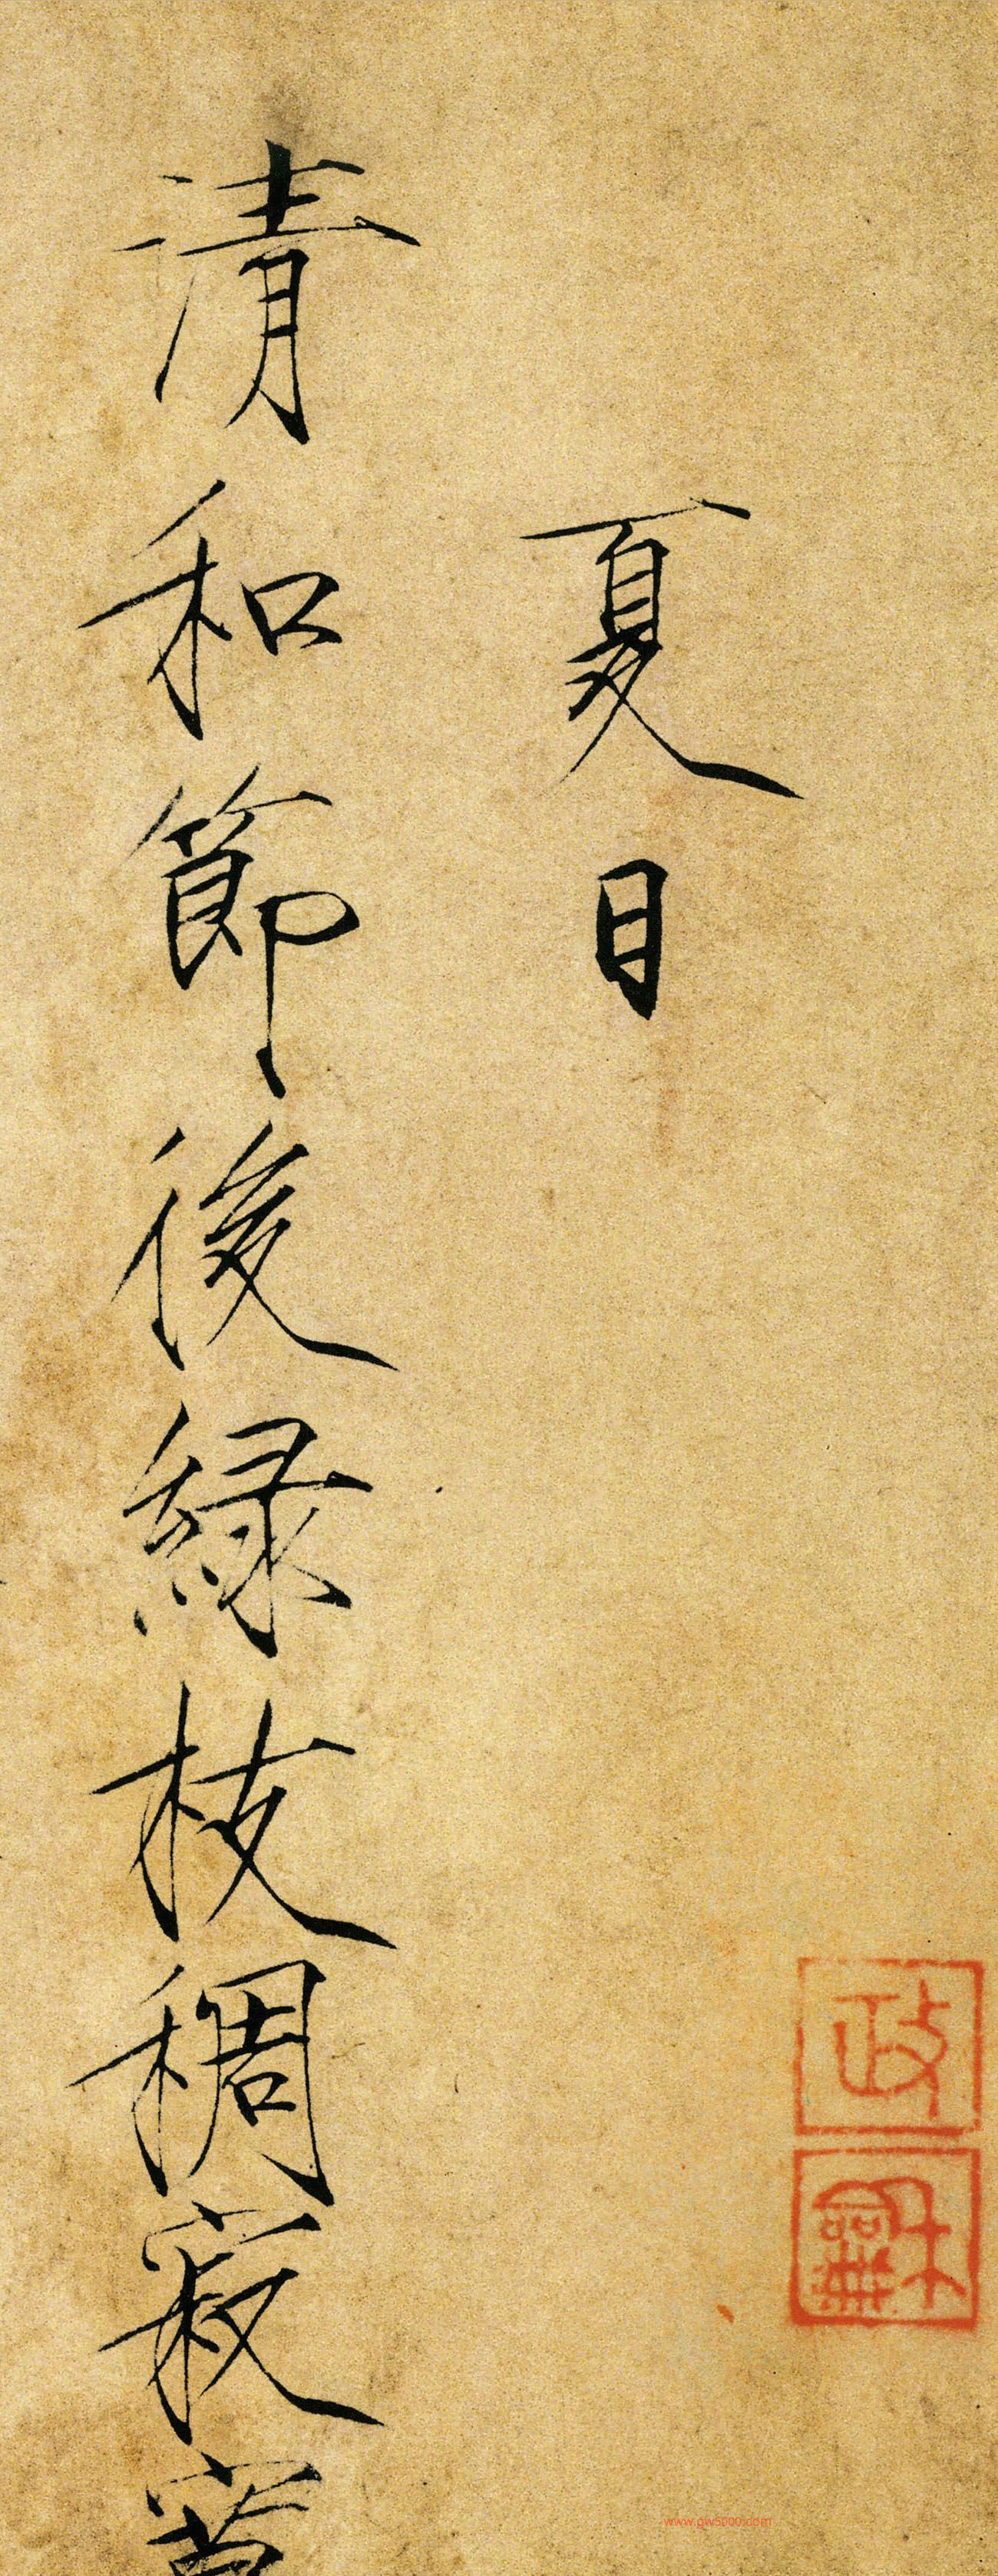 夏日
清和節後綠枝稠寂
政
龢
www.gw5000.com